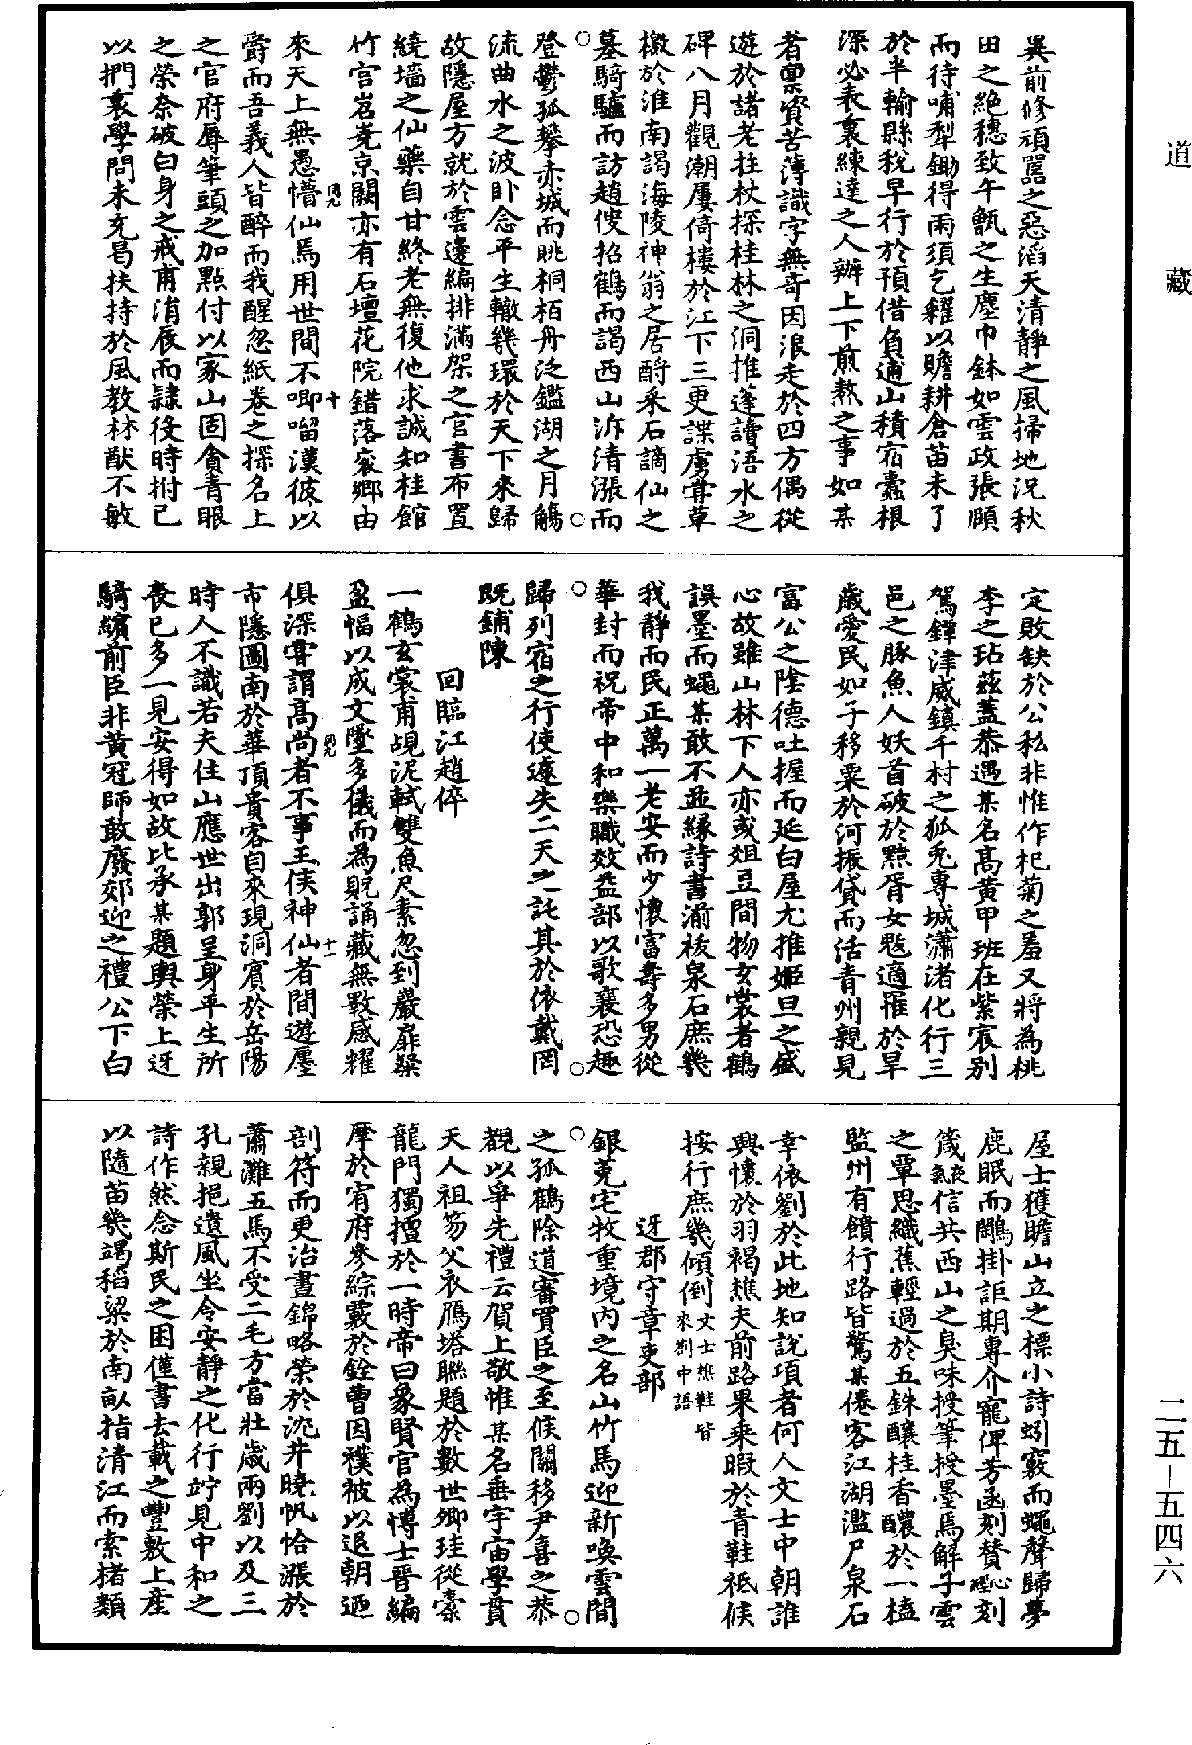 道藏
吳前修頑嚚之惡滔天清靜之風掃地況秋
田之絕穗致午甑之生塵巾鉢如雲政張頤
而待哺犁鋤得雨須乞糴以贍耕倉苗未了
於半輸縣稅早行於預借負逋山積宿蠹根
深必表裏練達之人辦上下煎熬之事如某
者稟資苦薄識字無奇因浪走於四方偶從
遊於諸老拄杖探桂林之洞推蓬讀浯水之
碑八月觀潮屢倚樓於江下三更諜虜甞草
檄於淮南謁海陵神翁之居酹采石謫仙之
墓騎驢而訪趙傁招鶴而謁西山泝清漲而
登鬱孤攀赤城而眺桐栢舟泛鑑湖之月觴
流曲水之波卧念平生轍幾環於天下來歸
故隱屋方就於雲邊編排滿架之官書布置
繞墻之仙藥自甘終老無復他求誠知桂館
竹宮岧嶤京闕亦有石壇花院錯落寰鄉由
來天上無愚懵仙馬用世間不唧㗝漢彼以
爵而吾義人皆醉而我醒忽紙卷之探名上
之官府辱筆頭之加點付以家山固貪青眼
之榮奈破白身之戒甫消辰而隸役時拊己
以捫裏學問未充曷扶持於風教林猷不敏
定敗缺於公私非惟作杞菊之羞又將為桃
李之玷茲蓋恭遇某名高黃甲班在紫宸別
駕鐔津威鎮千村之狐兎專城瀟渚化行三
邑之豚魚人妖首破於黥胥女魃適罹於旱
歲愛民如子移粟於河振貸而活青州親見
富公之陰德吐握而延白屋尤推姬旦之盛
心故雖山林下人亦或爼豆間物玄裳者鶴
誤墨而蠅某敢不並緣詩書湔祓泉石庶幾
我靜而民正萬一老安而少懷富壽多男從
華封而祝帝中和樂職效益部以歌襄恐趣
歸列宿之行使遽失二天之託其於依戴罔
既鋪陳
回臨江趙倅
一鶴玄裳甫覘泥軾雙魚尺素忽到嚴扉粲
盈幅以成文墜多儀而為貺誦藏無斁感耀
俱深甞謂高尚者不事王侯神仙者間遊廛
市隱圖南於華頂貴客自來現洞賓於岳陽
時人不識若夫住山應世出郭呈身平生所
喪已多一見安得如故比承某題輿榮上迓
騎繽前臣非黃冠師敢廢郊迎之禮公下白
屋士獲瞻山立之標小詩蚓竅而蠅聲歸夢
鹿眠而鷴掛詎期專介寵俾芳函刻贊心刻
篋信共西山之臭味授筆授墨焉解子雲
之覃思織蕉輕過於五銖釀桂香醲於一榼
監州有饋行路皆驚某倦客江湖濫尸泉石
幸依劉於此地知說項者何人文士中朝誰
興懷於羽褐樵夫前路果乘暇於青鞋祗候
按行庶幾傾倒文士樵鞋皆來劄中語
迓郡守章吏部
銀菟宅牧重境內之名山竹馬迎新喚雲間
之孤鶴除道審買臣之至候關移尹喜之恭
觀以爭先禮云賀上敬惟某名垂宇宙學貫
天人祖笏父衣鴈塔聯題於數世卿珪從槖
龍門獨擅於一時帝曰象賢官為博士晉編
摩於宥府參綜覈於銓曹因襆被以退朝迺
剖符而更治晝錦略榮於沈井曉帆恰漲於
蕭灘五馬不受二毛方當壯歲兩劉以及三
孔親挹遺風坐令安靜之化行竚見中和之
詩作然念斯民之困僅書去載之豐敷上產
以隨苗幾竭稻粱於南畝指清江而索楮類
二五-五四六